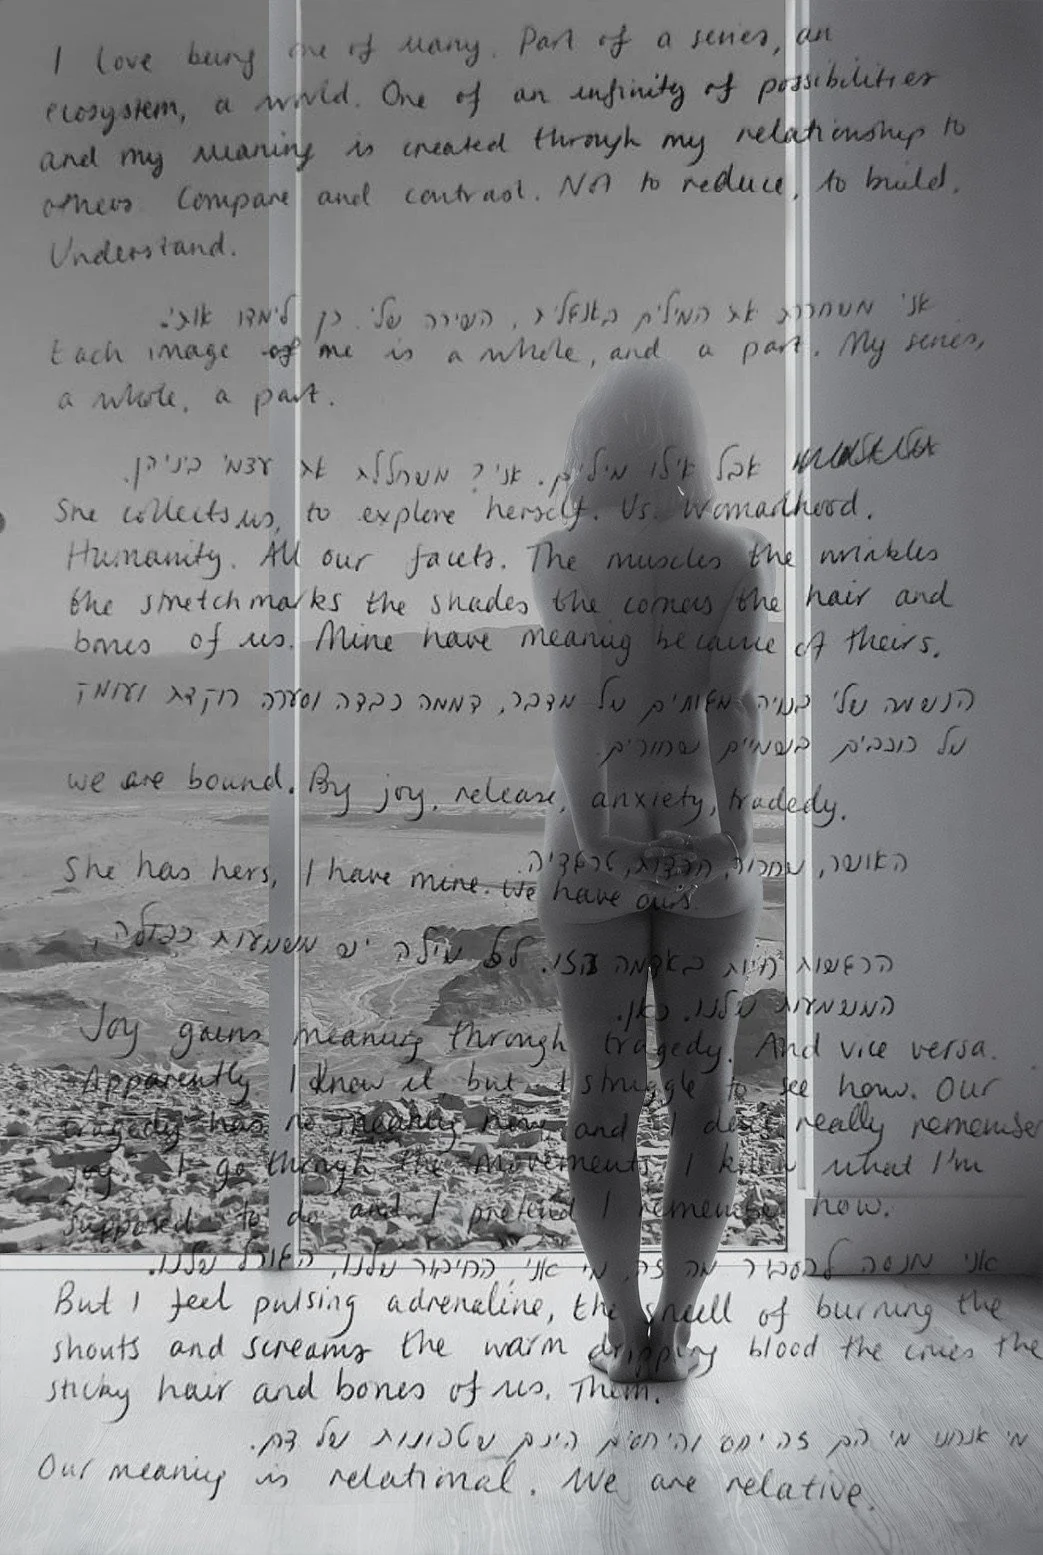 I love being one of many. Part of a series, an
ecosystem, a world. One of an infinity of possibilities
and my meaning is created through my relationship to
others. Compare and contrast. Not to reduce, to build.
Understand.
אני משחררת את המילים באנגלית, השירה שלי. כן לימדו אותי.
Each image of me is a whole, and a part. My series,
a whole, a part.
אבל אילו מילים. אני? משחללת את עצמי ביניהן.
She collects us, to explore herself. Us. Womanhood.
Humanity. All our facets. The muscles the wrinkles
the stretchmarks the shades the corners the hair and
bones of us. Mine have meaning because of theirs.
הנשמה שלי בנויה משותים על מדבר, דממה כבדה וסערה רוקדת ועומק
של כוכבים בשמיים שחורים.
we are bound. By joy, release, anxiety, tradedy.
האושר, שחרור, חרדות, טרגדיה.
She has hers, I have mine. We have ours.
הרגשות חיות באדמה הזו. לכל מילה יש משמעות כפולה,
המשמעות שלנו. כאן.
Joy gains meaning through tragedy. And vice versa.
Apparently I knew it but I struggle to see how. Our
tragedy has no meaning now and I don't really remember
joy. I go through the movements. I know what I'm
supposed to do and I pretend I remember how.
אני מנסה לזכור מה זה, מי אני, החיבור שלנו, האורל שלנו.
But I feel pulsing adrenaline, the smell of burning the
shouts and screams the warm dripping blood the cries the
sticky hair and bones of us. Them.
מי אנחנו מי הם זה יחס והיחסים הינם שטכונות של דם.
Our meaning is relational. We are relative.